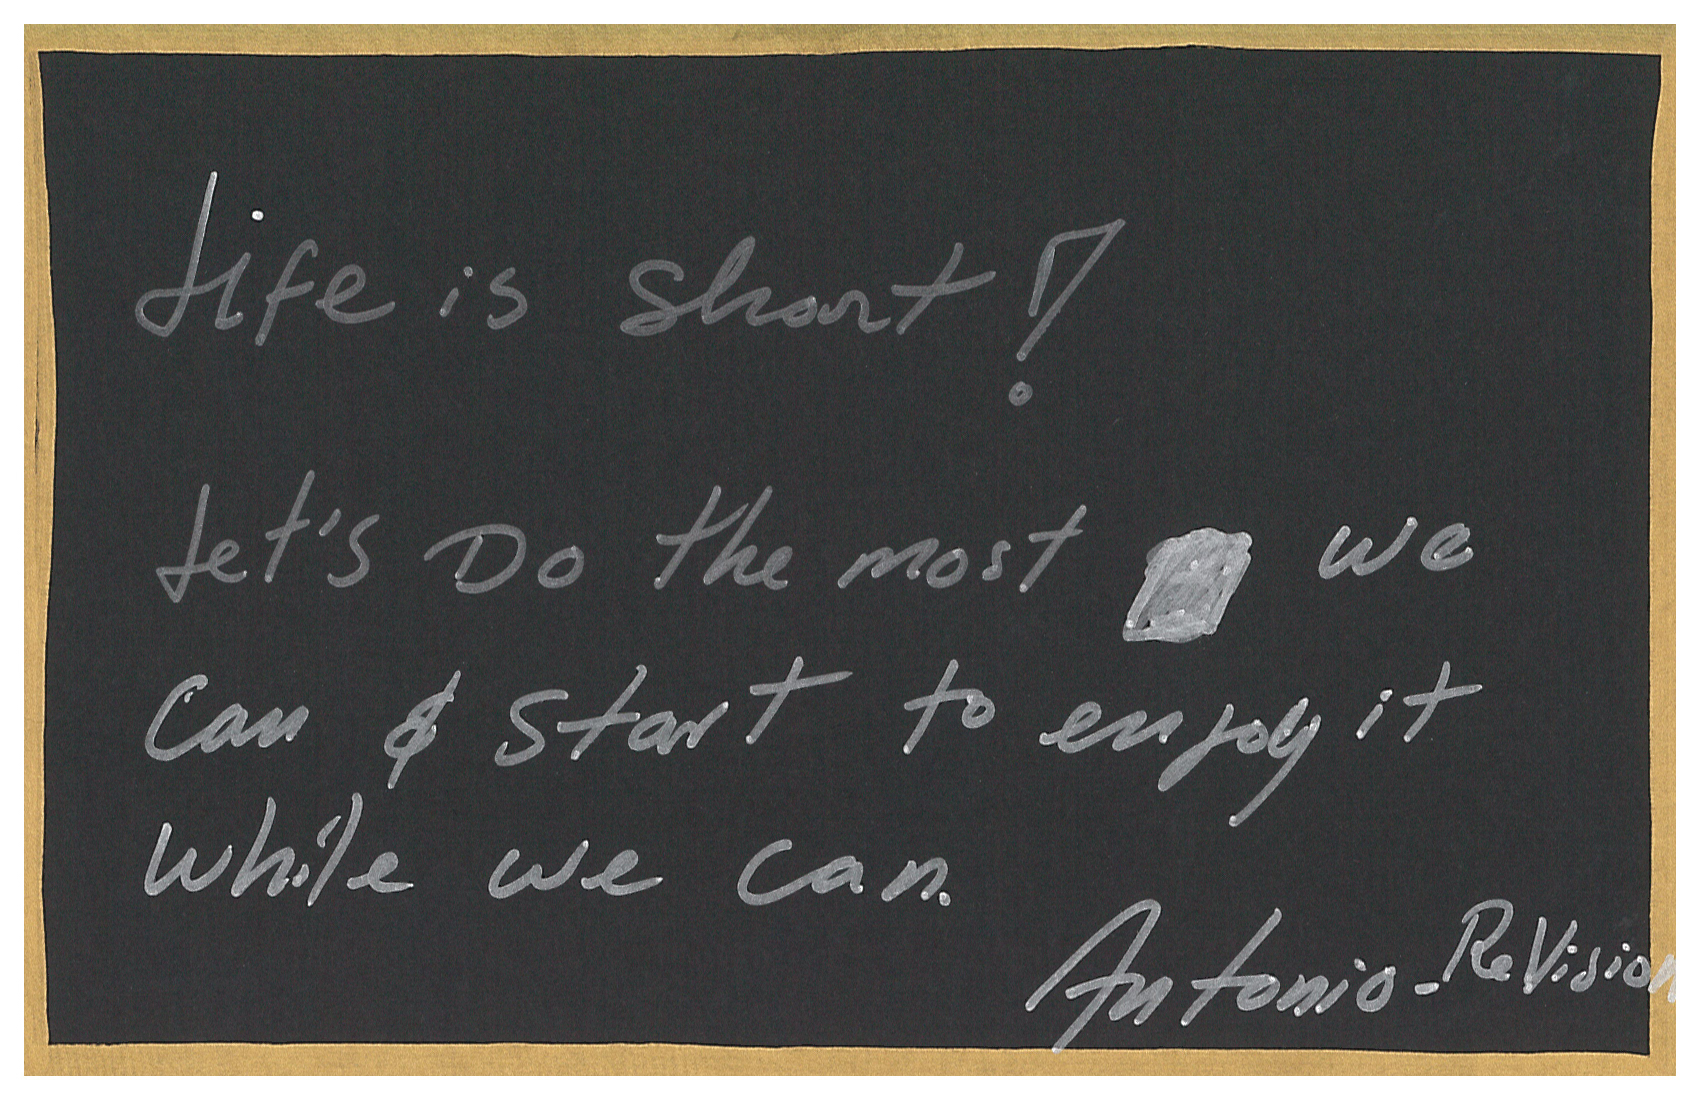 Life is short!
Let's Do the most we
Can & Start to enjoy it
while we can.
Antonio - ReVision